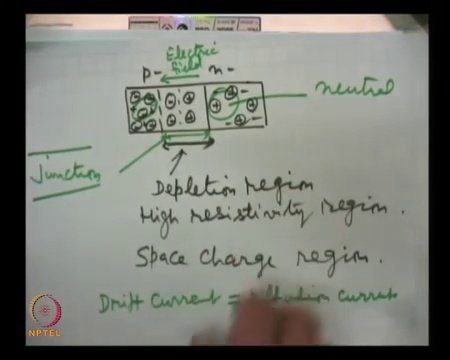 Electric
Field
p- n-
neutral
Junction
Depletion region
High resistivity region.
Space charge region.
Drift Current =
NPTEL